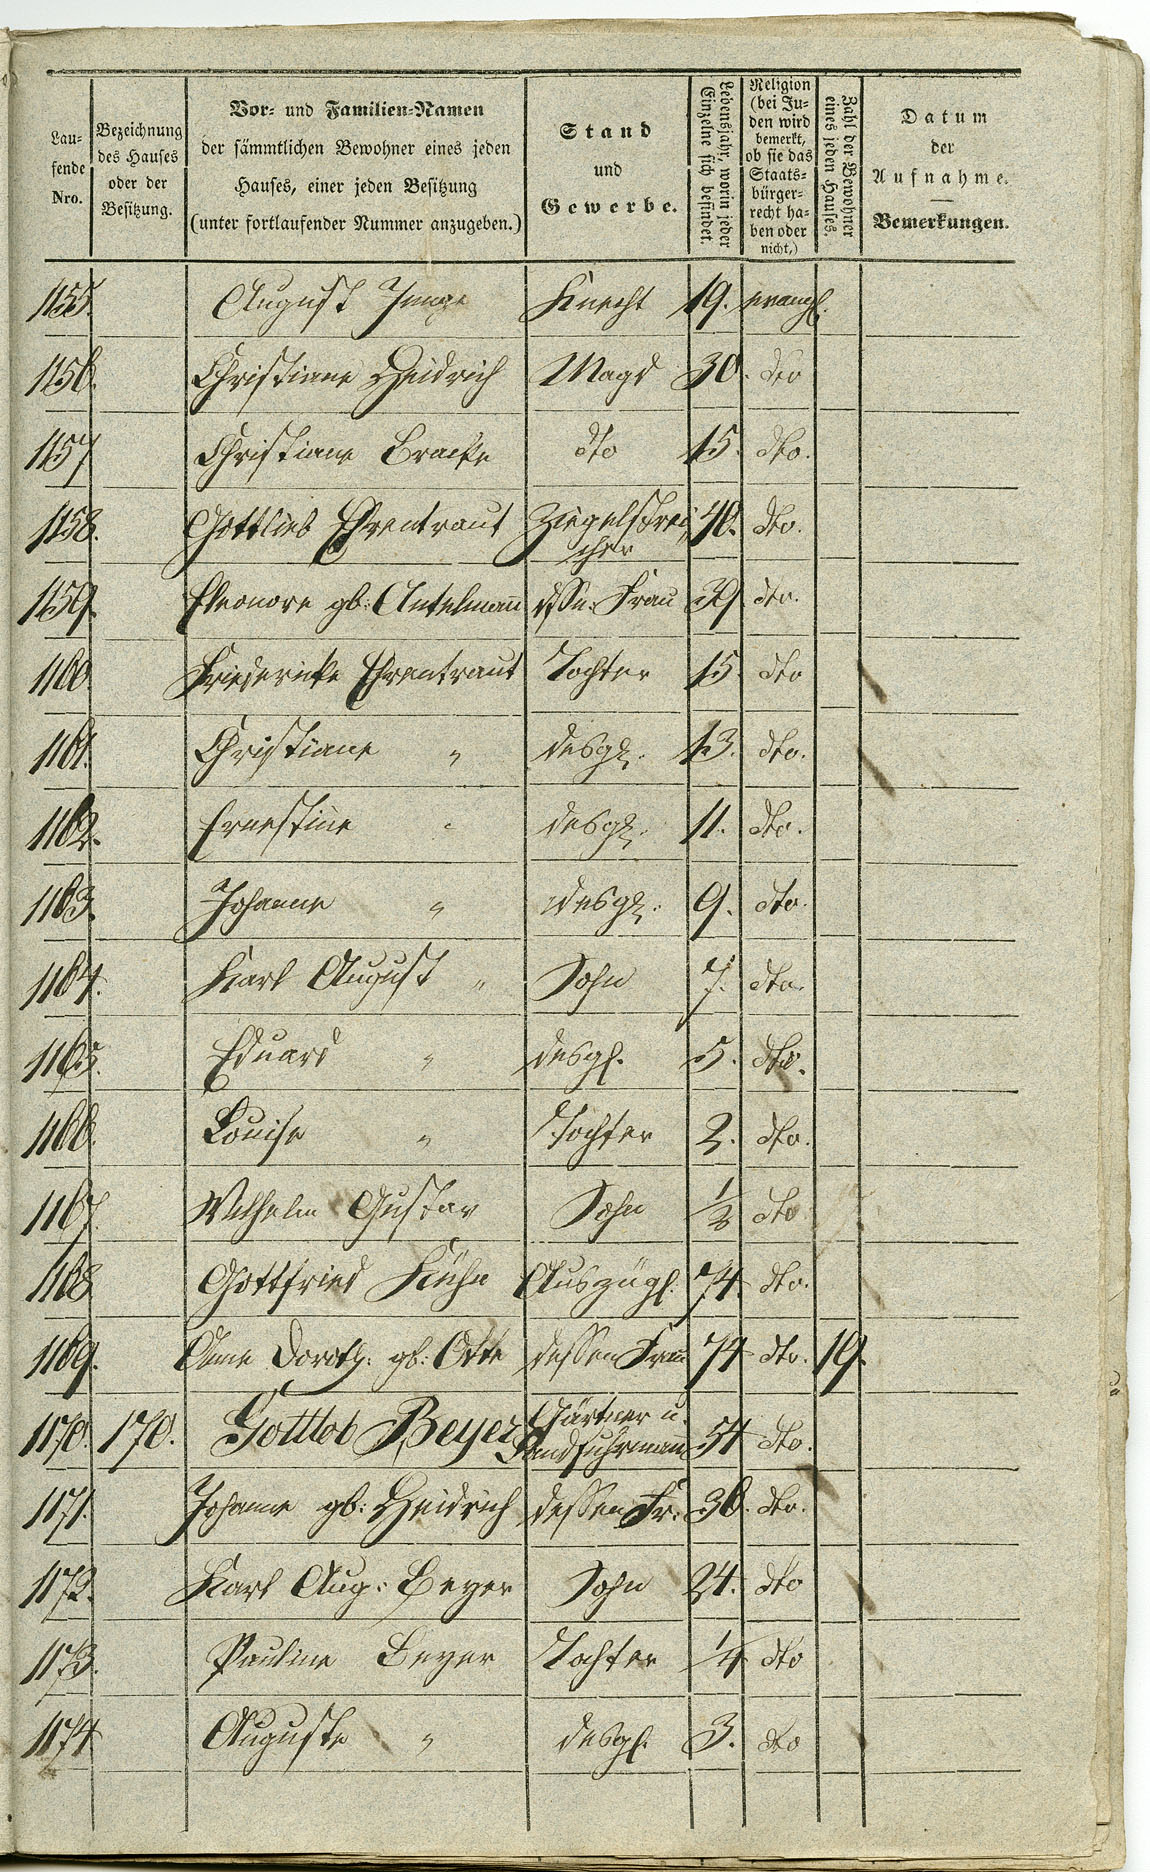 Lau-
fende
Nro.
Bezeichnung
des Hauses
oder der
Besitzung.
Vor- und Familien-Namen
der sämmtlichen Bewohner eines jeden
Hauses, einer jeden Besitzung
(unter fortlaufender Nummer anzugeben.)
Stand
und
Gewerbe.
Lebensjahr, worin jeder
Einzelne sich befindet.
Religion
(bei Ju-
den wird
bemerkt,
ob sie das
Staats-
bürger-
recht ha-
ben oder
nicht,)
Zahl der Bewohner
eines jeden Hauses.
Datum
der
Aufnahme.
Bemerkungen.
1155. August Knecht 19. evangl.
1156. Christiane Heidrich Magd 30. dto
1157 Christiane Bracke dto 15. dto.
1158. Gottlieb Ehrentraut Ziegelstrei- 40. dto.
cher
1159. Eleonore gb: Antelmann dssn. Frau 39 dto.
1160. Friedericke Ehrentraut Tochter 15 dto
1161. Christiane " desgl. 13. dto.
1162. Ernestine " desgl. 11. dto.
1163. Johanne " desgl. 9. dto.
1164. Karl August " Sohn 7. dto.
1165. Eduard " desgl. 5. dto.
1166. Louise " Tochter 2. dto.
1167. Wilhelm Gustav Sohn dto
1168 Gottfried Kühn Auszügl. 74. dto.
1169. Anne Doroth: gb: Otte dessen Frau 74 dto. 19.
1170. 170. Gottlob Beyer Gärtner u. 54 dto.
Landfuhrmann
1171. Johanne gb: Heidrich dessen Fr. 36. dto.
1172. Karl Aug: Beyer Sohn 24. dto
1173. Pauline Beyer Tochter 1/4 dto
1174 Auguste " desgl. 3. dto